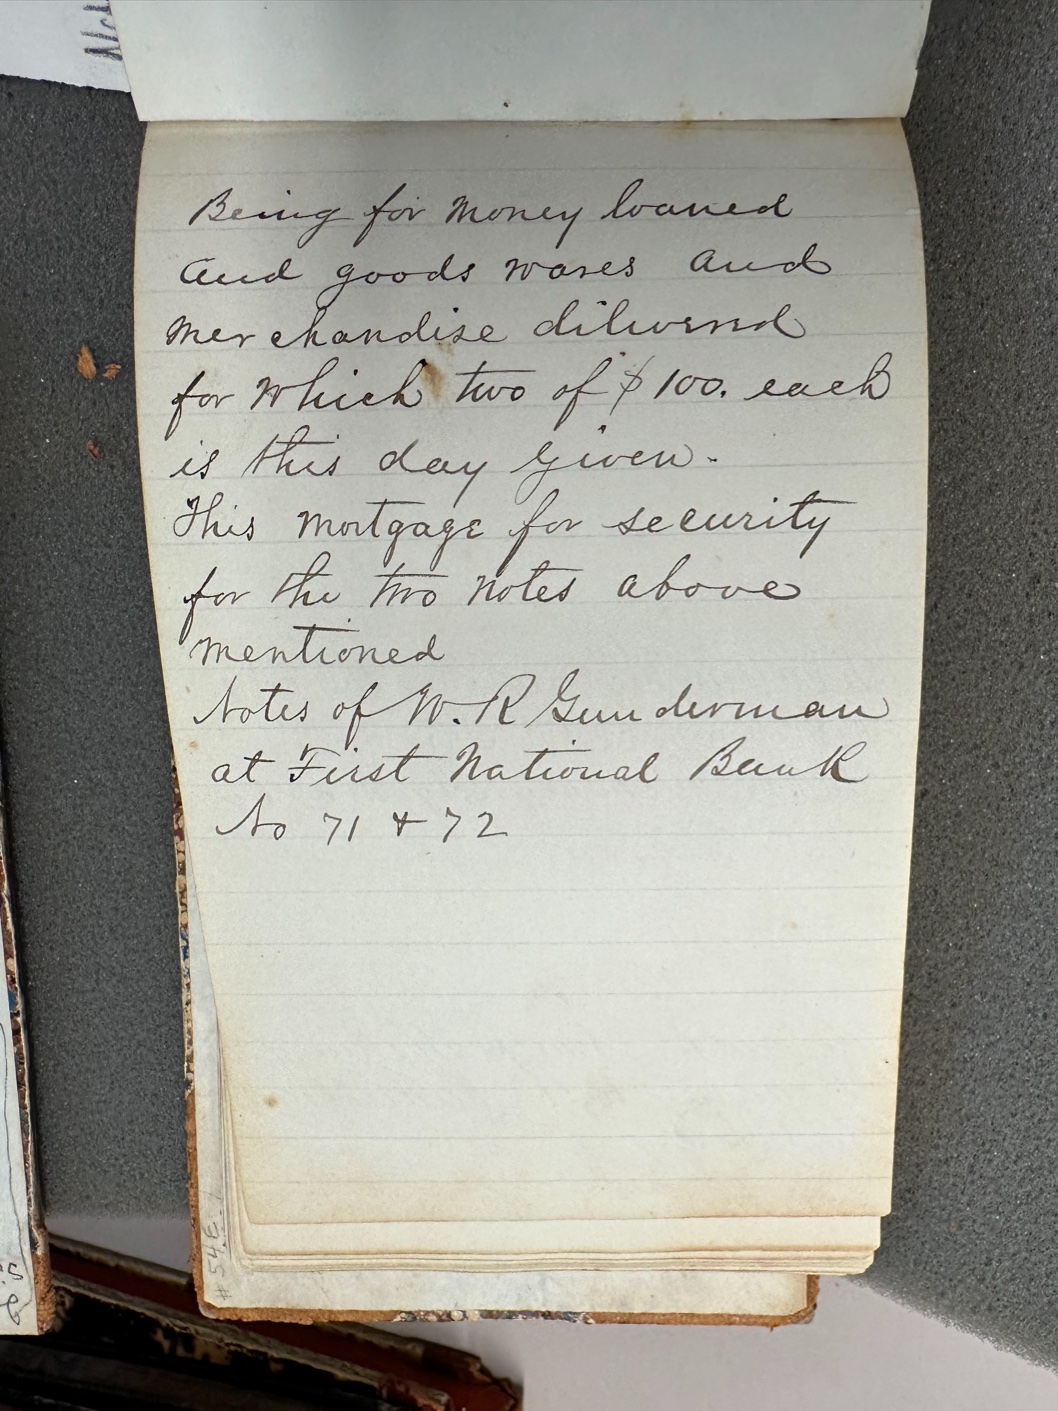 Being for Money loaned
and goods wares and
Merchandise dilivered
for which two of $100. each
is this day given.
This Mortgage for security
for the two Notes above
mentioned
Notes of W. R Gunderman
at First National Bank
No 71 & 72
# 54E